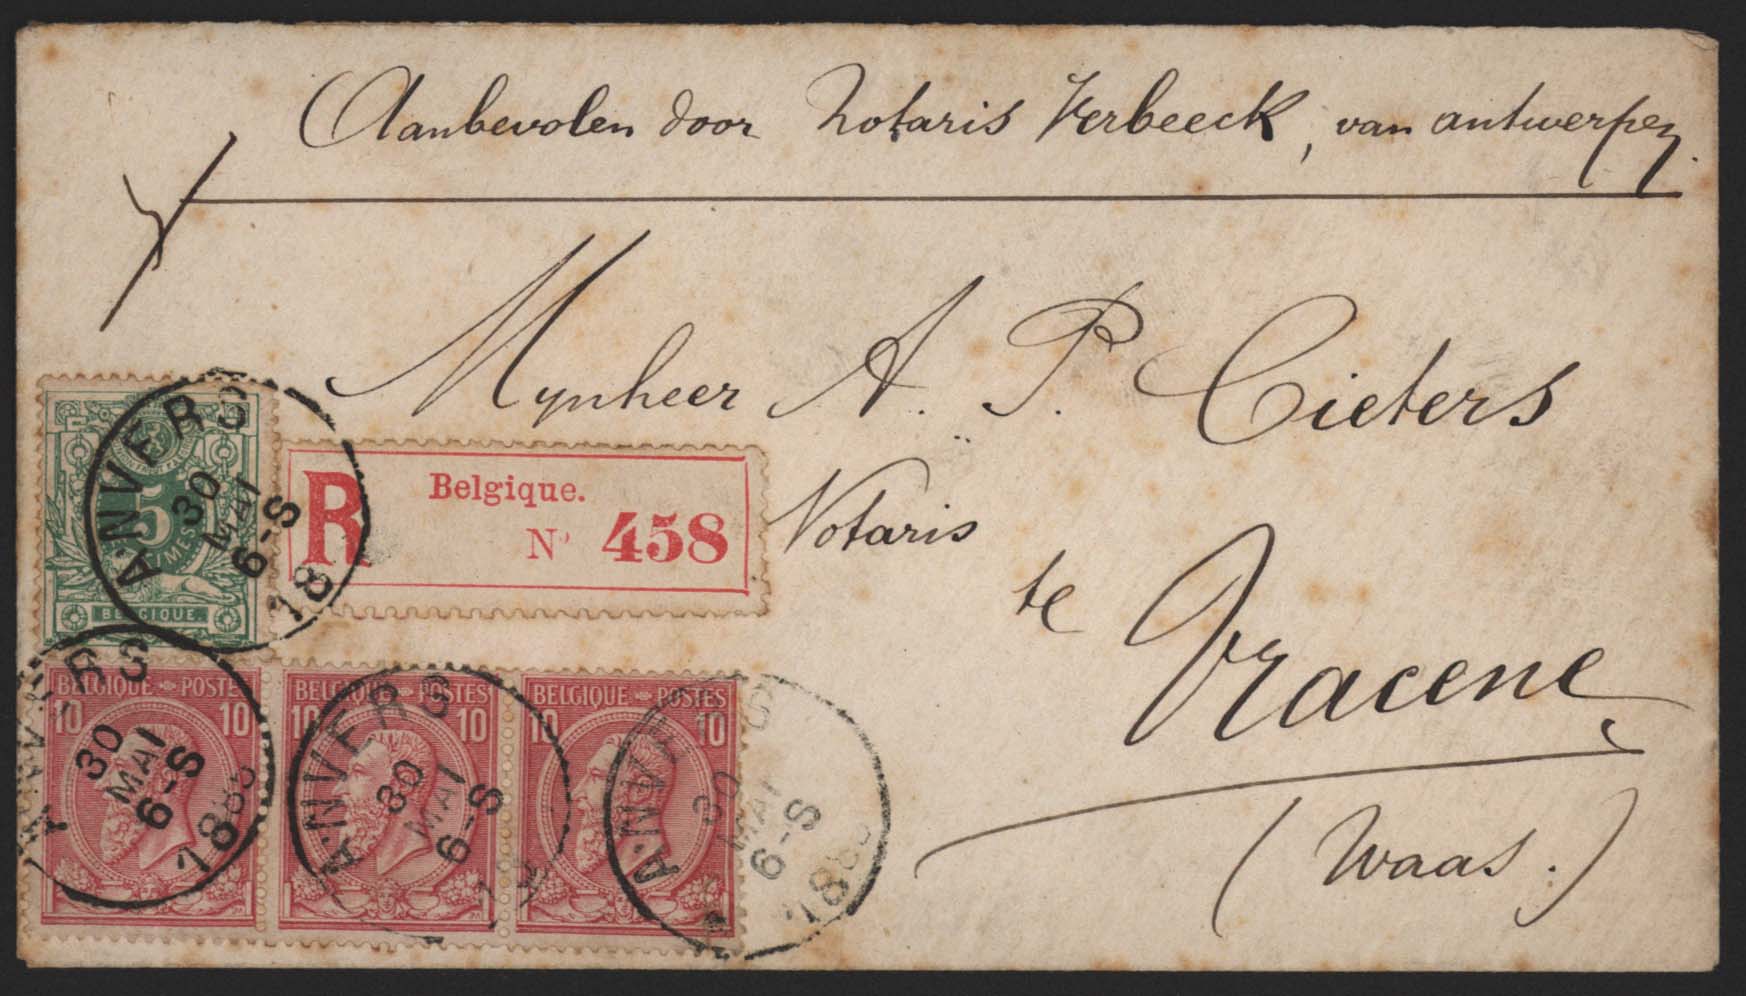 Aanbevolen door Notaris Verbeeck, van antwerpen.
Mynheer A. P. Cieters
Notaris
te
Vracene
(Waas.)
R
Belgique.
N° 458
5
BELGIQUE.
ANVERS
30
MAI
6-S
18
BELGIQUE POSTES
10 10
ANVERS
30
MAI
6-S
1883
BELGIQUE POSTES
10 10
ANVERS
30
MAI
6-S
BELGIQUE POSTES
10 10
30
MAI
6-S